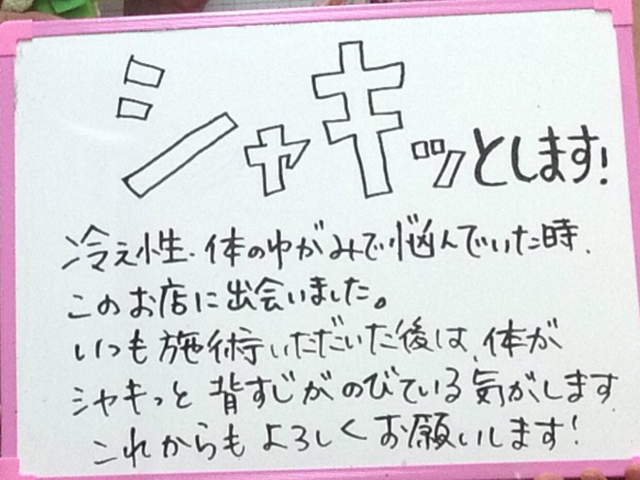 シャキッとします!
冷え性・体のゆがみで悩んでいた時、
このお店に出会いました。
いつも施術いただいた後は、体が
シャキっと背すじがのびている気がします
これからもよろしくお願いします!